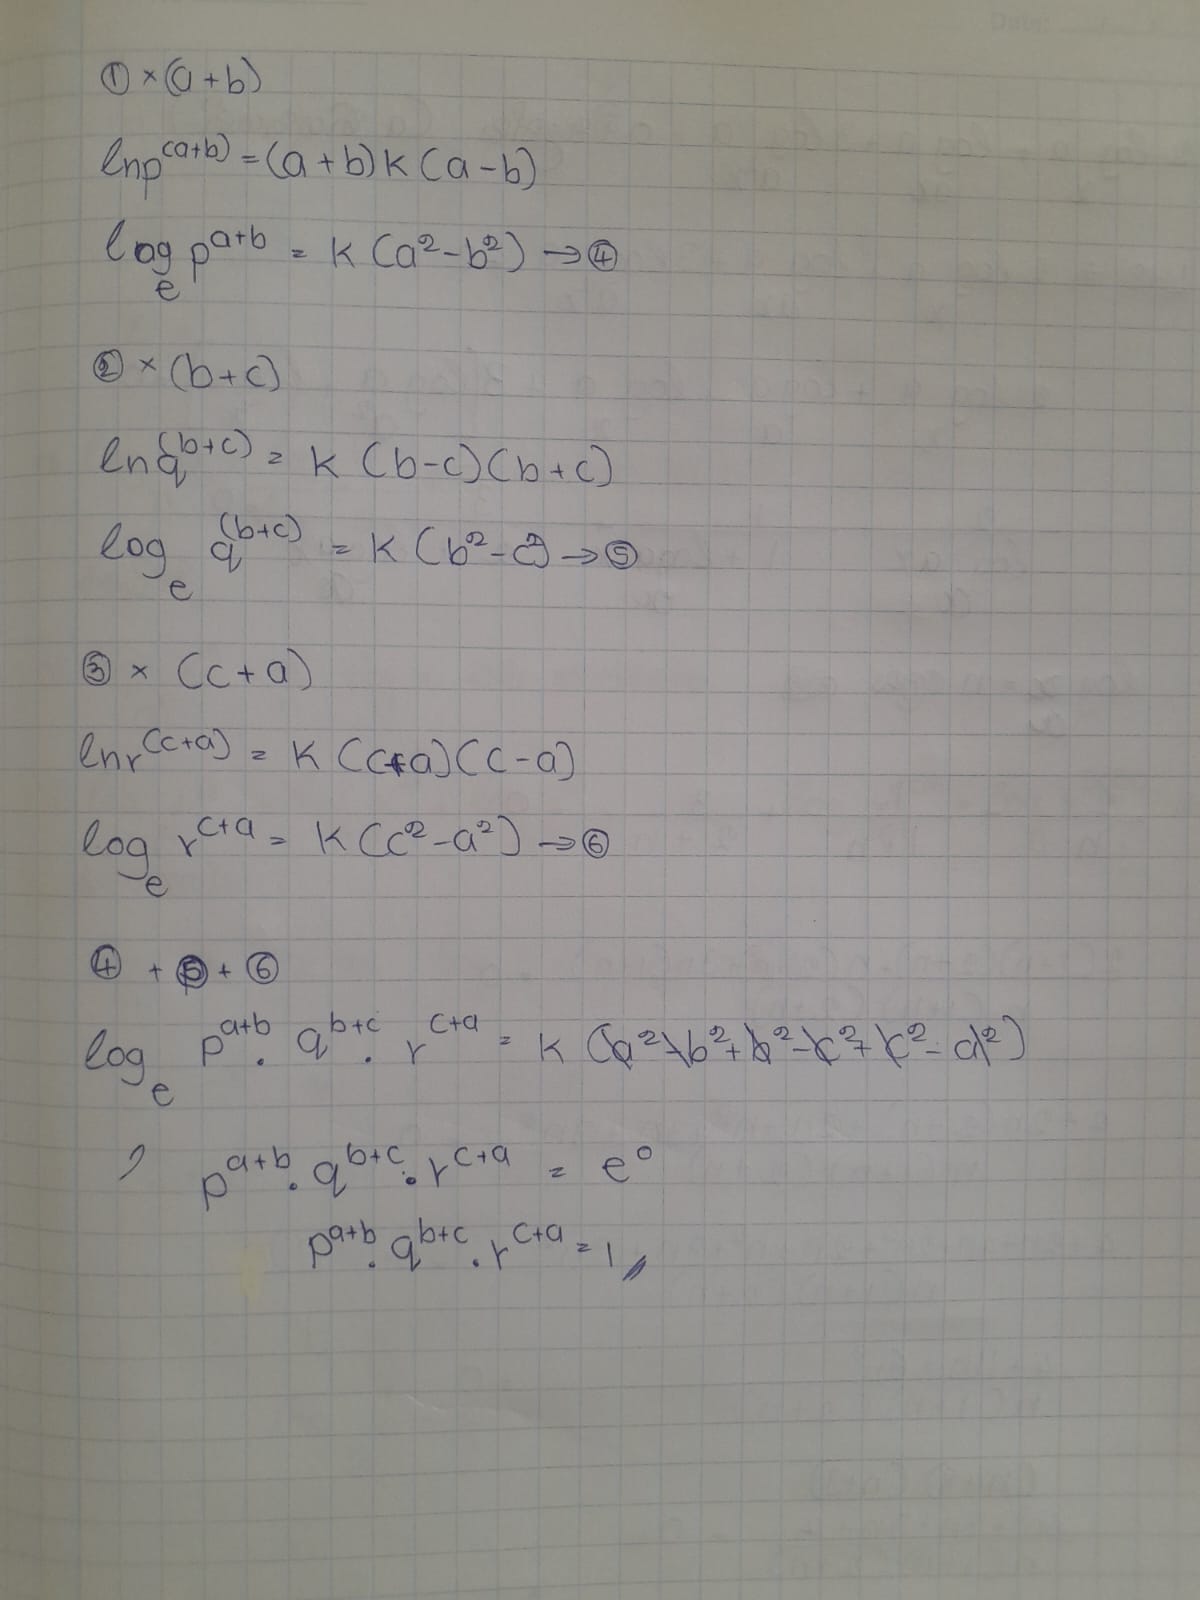 ① × (a + b)
ln p^(a+b) = (a + b) k (a - b)
log_e p^a+b = k (a² - b²) → ④
② × (b + c)
ln q^(b+c) = k (b - c) (b + c)
log_e q^(b+c) = k (b² - c²) → ⑤
③ × (c + a)
ln r^(c+a) = k (c+a) (c - a)
log_e r^c+a = k (c² - a²) → ⑥
④ + ⑤ + ⑥
log_e p^a+b . q^b+c . r^c+a = k (a² - b² + b² - c² + c² - a²)
p^a+b . q^b+c . r^c+a = e^0
p^a+b . q^b+c . r^c+a = 1//